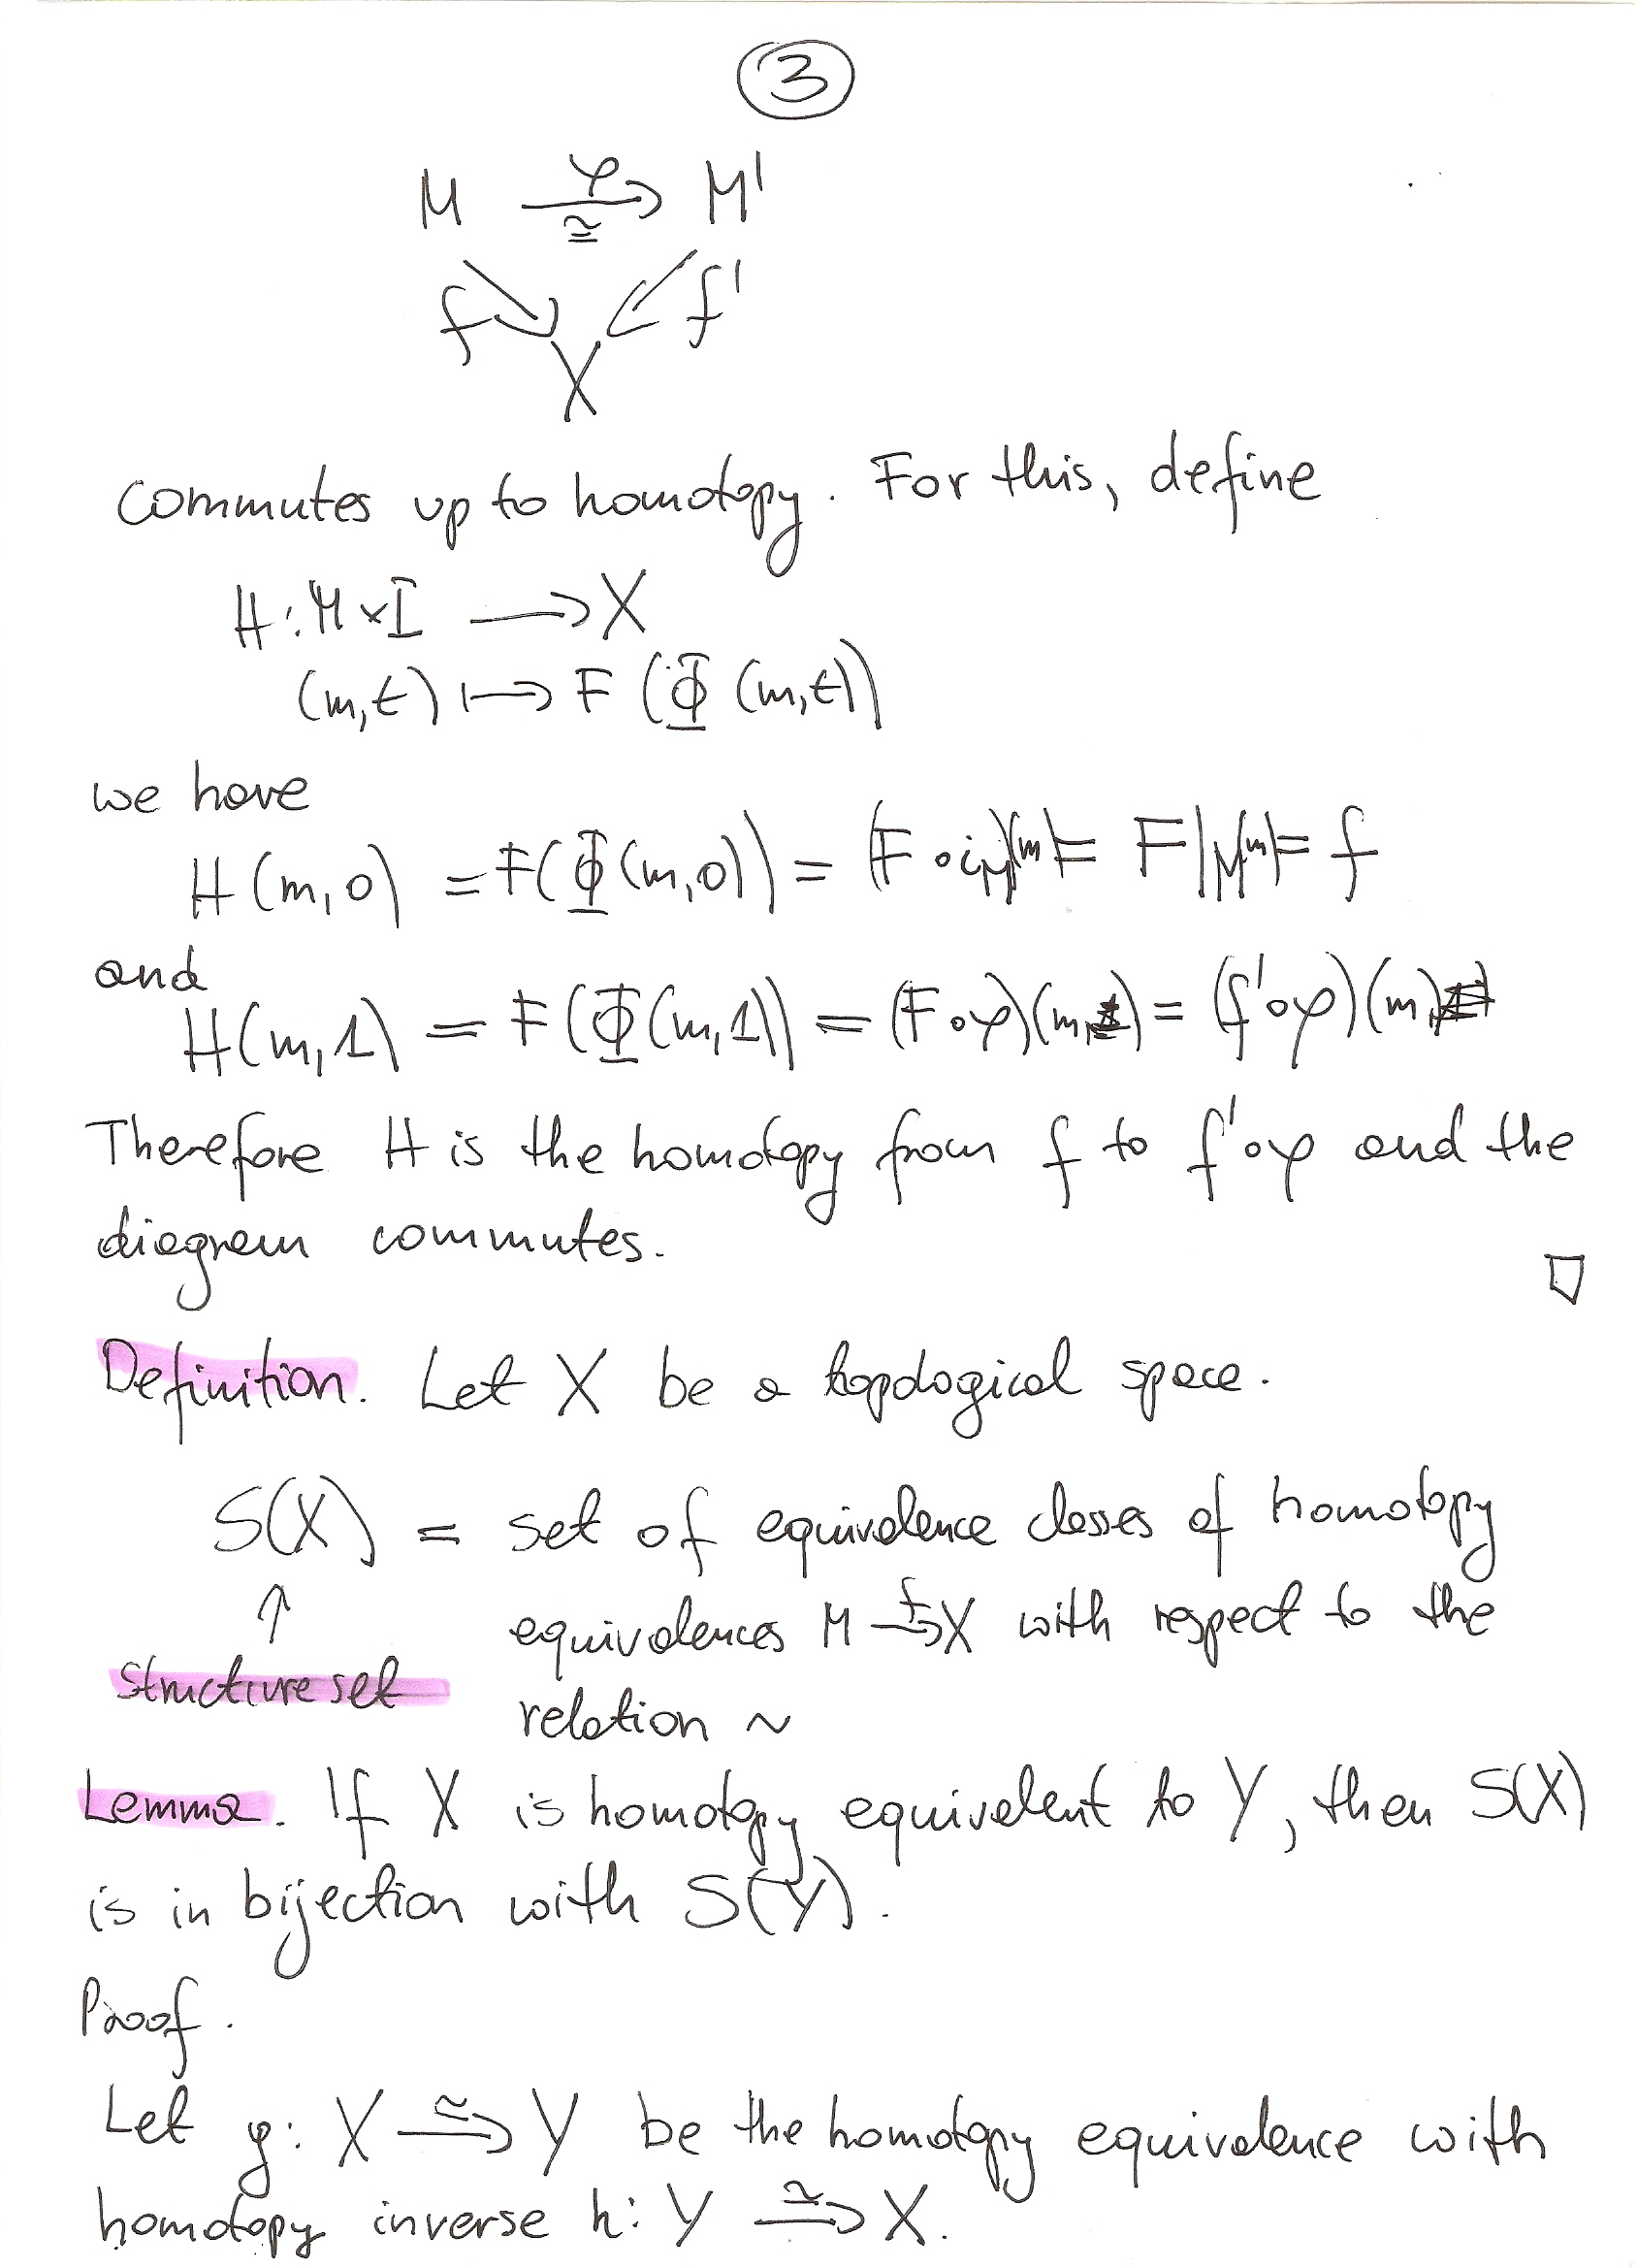 3
M φ→ ≅ M'
f f'
X
commutes up to homotopy. For this, define
H: M×I ⟶ X
(m,t) ↦ F (Φ (m,t))
we have
H(m,0) = F(Φ(m,0)) = (F∘i_M)(m) = F|_M(m) = f
and
H(m,1) = F(Φ(m,1)) = (F∘φ)(m) = (f'∘φ)(m)
Therefore H is the homotopy from f to f'∘φ and the
diagram commutes. □
Definition. Let X be a topological space.
S(X) = set of equivalence classes of homotopy
↑ equivalences M f→ X with respect to the
structure set
relation ~
Lemma. If X is homotopy equivalent to Y, then S(X)
is in bijection with S(Y).
Proof.
Let g: X ≃→ Y be the homotopy equivalence with
homotopy inverse h: Y ≃→ X.